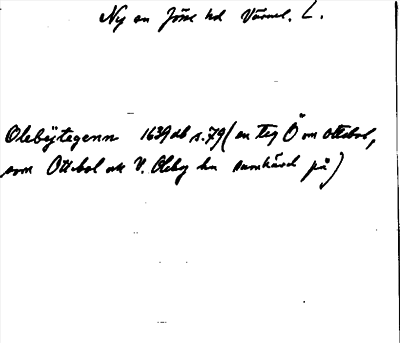 Ny sn Jösse hd Värml. L.
Olebÿtegenn 1639 db s.79 (en teg Ö om Ottebol,
som Ottebol och V. Oleby ha samhävd på)